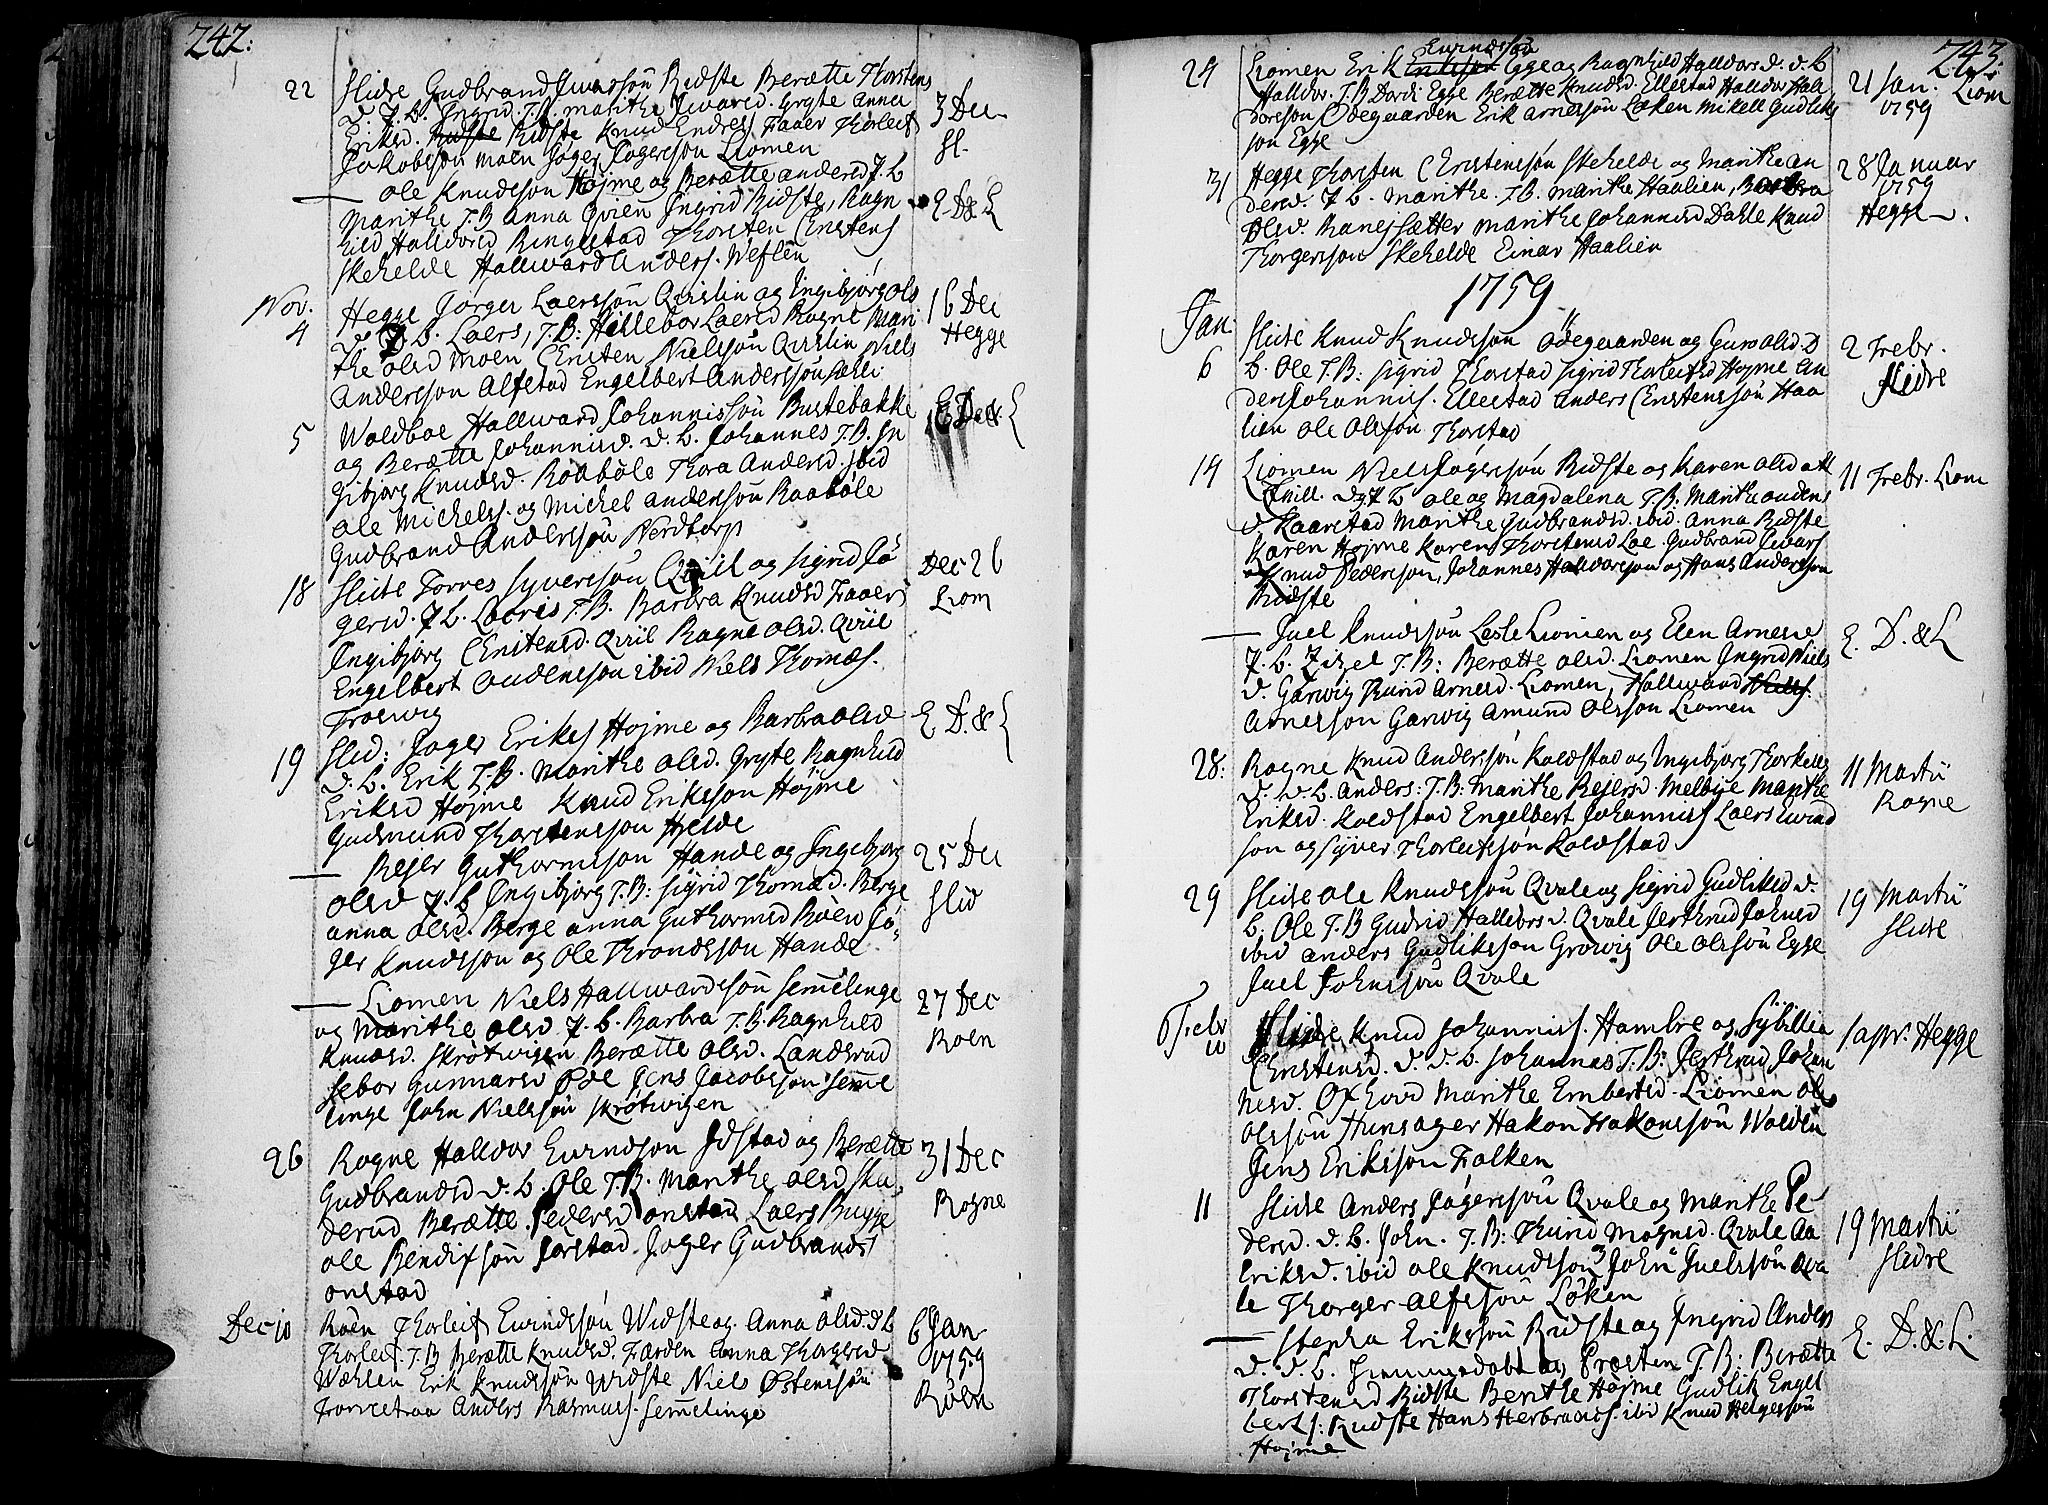 242:
22
Slidre Gudbrand Iwarssøn Ridste Berætte Thorstens
d. F. B. Ingrid T.B. Marithe Iwarsd. Gryte Anna
Eriksd. Ridste Knud Endres. Faaer Thorleif
Jakobssøn Moen Jøger Jogerssøn Liomen
3 Dec
Sl.
— Ole Knudssøn Højme og Berætte Andersd F. B.
Marithe T.B Anna Qvien Ingrid Ridste, Ragn
hild Halldorsd Ringestad Thorsten Christens
Skehelde Hallward Anders. Weflen
E. D. & L
Nov.
4
Hegge Jørger Laerssøn Qvislin og Ingibjørg Ols
d. F. B. Laers, T.B: Hillebor Laersd Rogne Mari
the Olsd Moen Christen Nielssøn Qvislin Niels
Anderssøn Alfstad Engelbert Anderssøn Sæhli
16 Dec
Hegge
5
Woldboe Hallward Johannissøn Bustebakke
og Berætte Johannisd. d. B. Johannes T.B. In
gibjørg Knudsd. Raabøle Thora Andersd. ibid
Ole Michels. og Michel Anderssøn Raabøle
Gudbrand Anderssøn Nerdtorp
E D. & L
18
Slidre Torres Syverssøn Qviil og Sigrid Jø
gersd. F B. Laeris T.B. Barbra Knudsd Faaer
Ingibjørg Christensd. Qviil Ragne Olsd. Qviil
Engelbert Anderssøn ibid Niels Thomæs.
Froswig
Dec 26
Liom
19
Slid: Joger Eriks. Højme og Barbra Olsd
d. B. Erik T.B. Marithe Olsd. Gryte Ragnhild
Eriksd Højme Knud Erikssøn Højme
Gudmund Thorstenssøn Hjelde
E D. & L
— Rejer Guthormssøn Hande og Ingibjorg
Olsd F. B Ingibjørg T.B: Sigrid Thomæd. Berge
Anna Olsd. Berge Anna Guthormsd Røen Jø-
ger Knudssøn og Ole Throndssøn Hande
25 Dec
Slid
— Liomen Niels Hallwardssøn Semelinge
og Marithe Olsd F. B. Barbra T.B. Ragnhild
Knudsd. Skrøtwigen Berætte Olsd. Landsrud
Sebor Gunnarsd Øde Jens Jacobssøn Seme
linge John Nielssøn Skrøtwigen
27 Dec
Roen
26
Rogne Halldor Ewindssøn Idstad og Berætte
Gudbrandsd d. B. Ole T.B. Marithe Olsd Sku
derud Berætte Pedersd Onstad Laers Bugge
Ole Bendixsøn Jarstad Joger Gudbrands
Onstad
31 Dec
Rogne
Dec 10
Røen Thorleif Ewindssøn Widste og Anna Olsd. d B
Thorleif. T.B Berætte Knudsd. Færden Anna Thorgersd
Wæhlen Erik Knudssøn Widste Niels Østenssøn
Anders Rasmus. Semelinge
6 Jan
1759
Røen
243.
24
Liomen Erik Ewindssøn Egge og Ragnhild Halldors d. d. B
Halldor. T.B Dordi Egge Berætte Knudsd. Ellestad Halldor Hal
dorssøn Ødegaarden Erik Arnessøn Løken Mikell Gudliks
søn Egge
21 Jan. Liom
1759
31
Hegge Thorsten Christenssøn Skehelde og Marithe An
dersd. F B. Marithe. T.B. Marithe Haalien, Barbra
Olsd. Ranejsætter Marithe Johannisd Dahle Knud
Thorgerssøn Skehelde Einar Haalien
28 Januar
1759
Hegge
1759
Jan.
6
Slidre Knud Knudssøn Ødegaarden og Guro Olsd. d
B. Ole T.B: Sigrid Thorstad Sigrid Thorleifsd Højme An
ders Johannis. Ellestad Anders Christenssøn Haa
lien Ole Olssøn Thorstad
2 Febr.
Slidre
14
Liomen Niels Jøgerssøn Ridste og Karen Olsd
d. F B Ole og Magdalena T.B: Marithe Anders
d. Kaarstad Marithe Gudbrandsd. ibid. Anna Ridste
Karen Højme Karen Thorstensd Loe Gudbrand Iwars
Knud Pederssøn, Johannes Haldorssøn og Hans Anderssøn
Ridste
11 Febr. Liom
— Juel Knudssøn Lesle Liomen og Elen Arnesd
F. B. Zizel T.B: Berætte Olsd. Liomen Ingrid Niels
d. Garwig Thurid Arnesd. Liomen, Hallward
Arnessøn Garwig Amund Olssøn Liomen
E. D. & L
28.
Rogne Knud Anderssøn Koldstad og Ingibjørg Thorkells
d. d. B. Anders: T.B: Marithe Rejersd. Melbye Marithe
Eriksd. Koldstad Engelbert Johannis. Laers Ewind
søn og Syver Thorleifssøn Koldstad
11 Martii
Rogne
29
Slidre Ole Knudssøn Qvale og Sigrid Gudliksd d.
B. Ole T.B Gudrid Halldorsd. Qvale Jerthrud Johnsd
ibid Anders Gudlikssøn Growig Ole Olssøn Egge
Juel Johnssøn Qvale
19 Martii
Slidre
6 Febr
Slidre Knud Johannis. Hambre og Sybillia
Christensd. d. d. B. Johannes T.B: Jerthrud Johan
nisd. Marithe Embertsd. Liomen Ole
Olssøn Hunsager Hakon Hakonssøn Wolden
Jens Erikssøn Falken
1 Apr. Hegge
11
Slidre Anders Jøgerssøn Qvale og Marithe Pe-
dersd. d. B. John. T.B: Thurid Mognsd. Qvale Aa
Eriksd. ibid Ole Knudssøn John Juelssøn Qva
le Thorger Alfssøn Løken
19 Martii
Slidre
— Stepha Erikssøn Ridste og Ingrid Anders
d. d. B. T.B: Berætte
Thorstensd Ridste Berithe Højme Gudlik Engel
berts. Ridste Hans Herbrands. ibid Knud Helgessøn
Højme
E. D. & L.